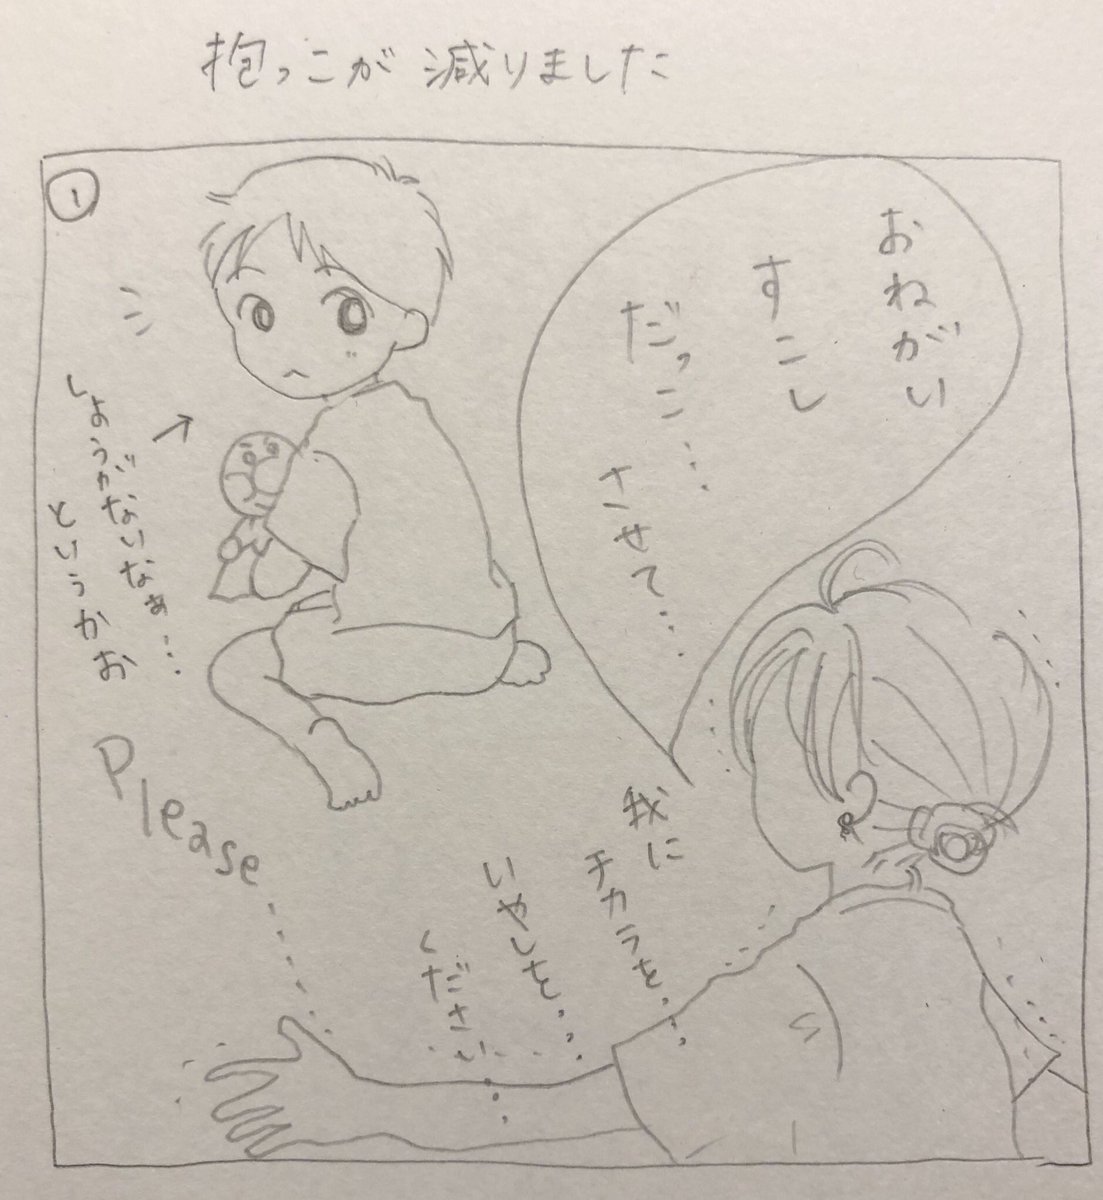 抱っこが 減りました
1
おねがい
すこし
だっこ…
させて…
しょうがないなぁ…
というかお
Please……
我に
チカラを…
いやしを…
ください……